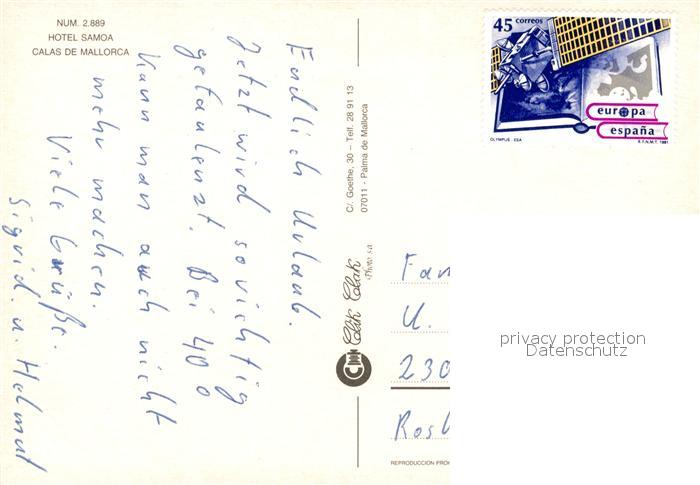 NUM. 2.889
HOTEL SAMOA
CALAS DE MALLORCA
Endlich Urlaub.
Jetzt wird so richtig
gefaulenzt. Bei 40°
kann man auch nicht
mehr machen.
Viele Grüße.
Sigrid. u. Helmut
C/. Goethe, 30 – Telf. 28 91 13
07011 - Palma de Mallorca
Clik Clak
Photo s.a.
45 correos
europa
españa
OLYMPUS - ESA
F.N.M.T. 1991
Fam
U.
230
Rost
REPRODUCCION PROH
privacy protection
Datenschutz